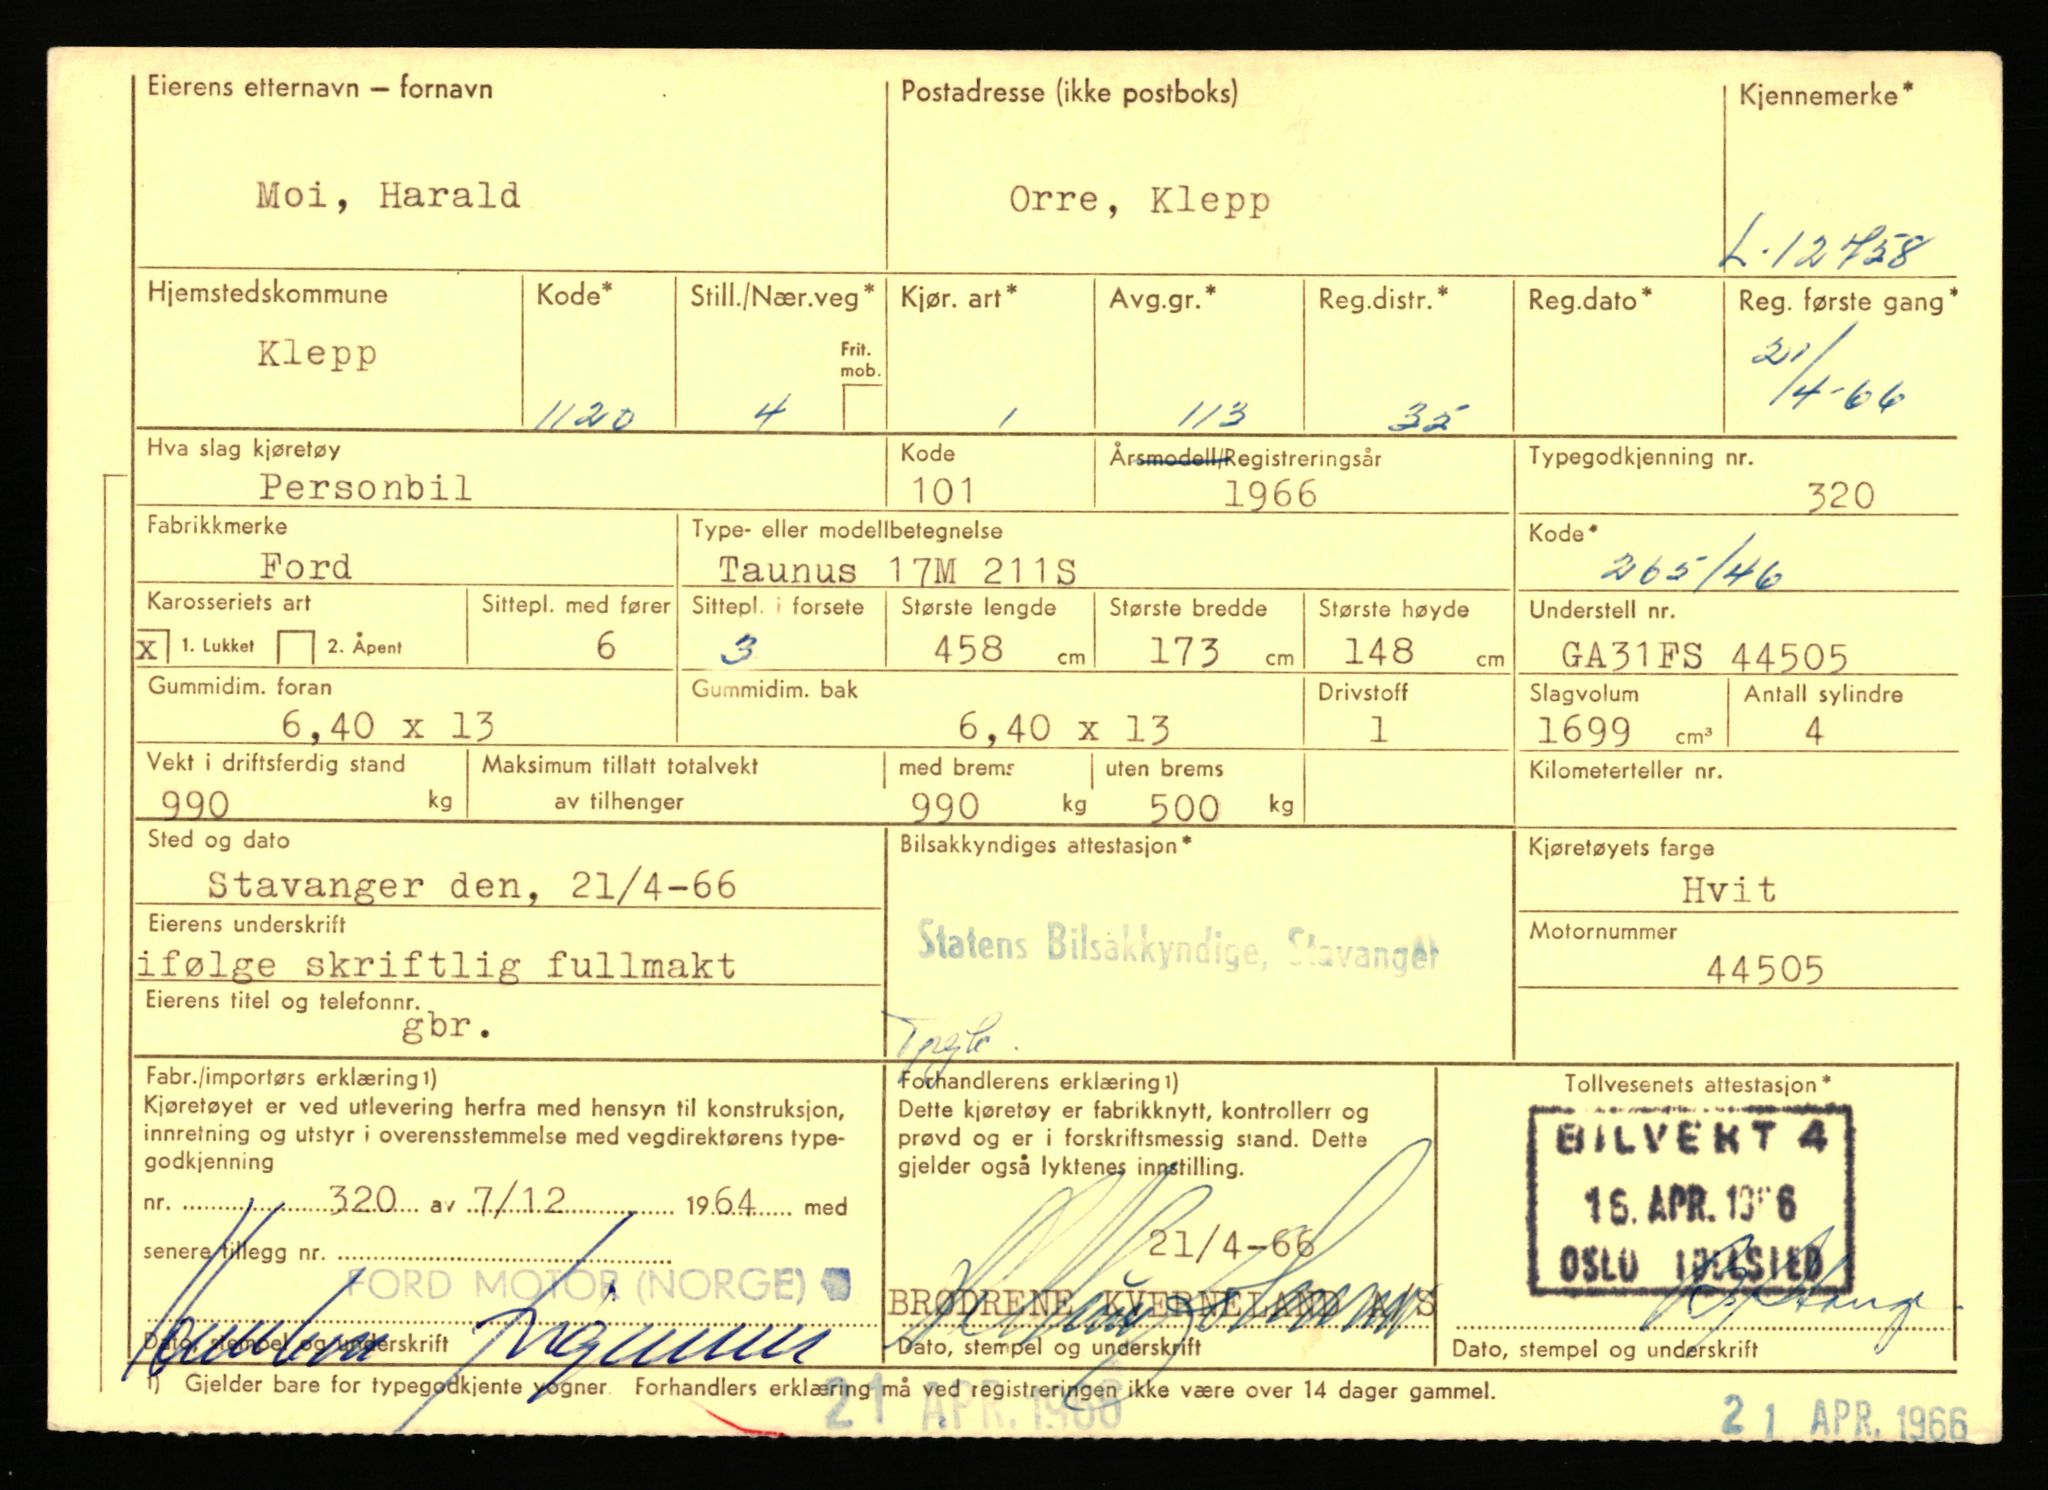 Eierens etternavn – fornavn Postadresse (ikke postboks) Kjennemerke*
Moi, Harald Orre, Klepp L-12758
Hjemstedskommune Kode* Still./Nær.veg* Kjør. art* Avg.gr.* Reg.distr.* Reg.dato* Reg. første gang*
Klepp Frit. mob. 21/4-66
1120 4 1 113 35
Hva slag kjøretøy Kode Årsmodell/Registreringsår Typegodkjenning nr.
Personbil 101 1966 320
Fabrikkmerke Type- eller modellbetegnelse Kode*
Ford Taunus 17M 211S 265/46
Karosseriets art Sittepl. med fører Sittepl. i forsete Største lengde Største bredde Største høyde Understell nr.
x 1. Lukket 2. Åpent 6 3 458 cm 173 cm 148 cm GA31FS 44505
Gummidim. foran Gummidim. bak Drivstoff Slagvolum Antall sylindre
6,40 x 13 6,40 x 13 1 1699 cm³ 4
Vekt i driftsferdig stand Maksimum tillatt totalvekt med brems uten brems Kilometerteller nr.
990 kg av tilhenger 990 kg 500 kg
Sted og dato Bilsakkyndiges attestasjon* Kjøretøyets farge
Stavanger den, 21/4-66 Hvit
Eierens underskrift Statens Bilsakkyndige, Stavanger Motornummer
ifølge skriftlig fullmakt 44505
Eierens titel og telefonnr.
gbr.
Fabr./importørs erklæring1) Forhandlerens erklæring1) Tollvesenets attestasjon*
Kjøretøyet er ved utlevering herfra med hensyn til konstruksjon, Dette kjøretøy er fabrikknytt, kontrollert og
innretning og utstyr i overensstemmelse med vegdirektørens type- prøvd og er i forskriftsmessig stand. Dette
godkjenning gjelder også lyktenes innstilling.
BILVEKT 4
16. APR. 1966
OSLO TOLLSTED
nr. 320 av 7/12 1964 med
senere tillegg nr. 21/4-66
FORD MOTOR (NORGE)
BRØDRENE KVERNELAND A/S
Dato, stempel og underskrift Dato, stempel og underskrift Dato, stempel og underskrift
1) Gjelder bare for typegodkjente vogner. Forhandlers erklæring må ved registreringen ikke være over 14 dager gammel.
21 APR. 1966 21 APR. 1966